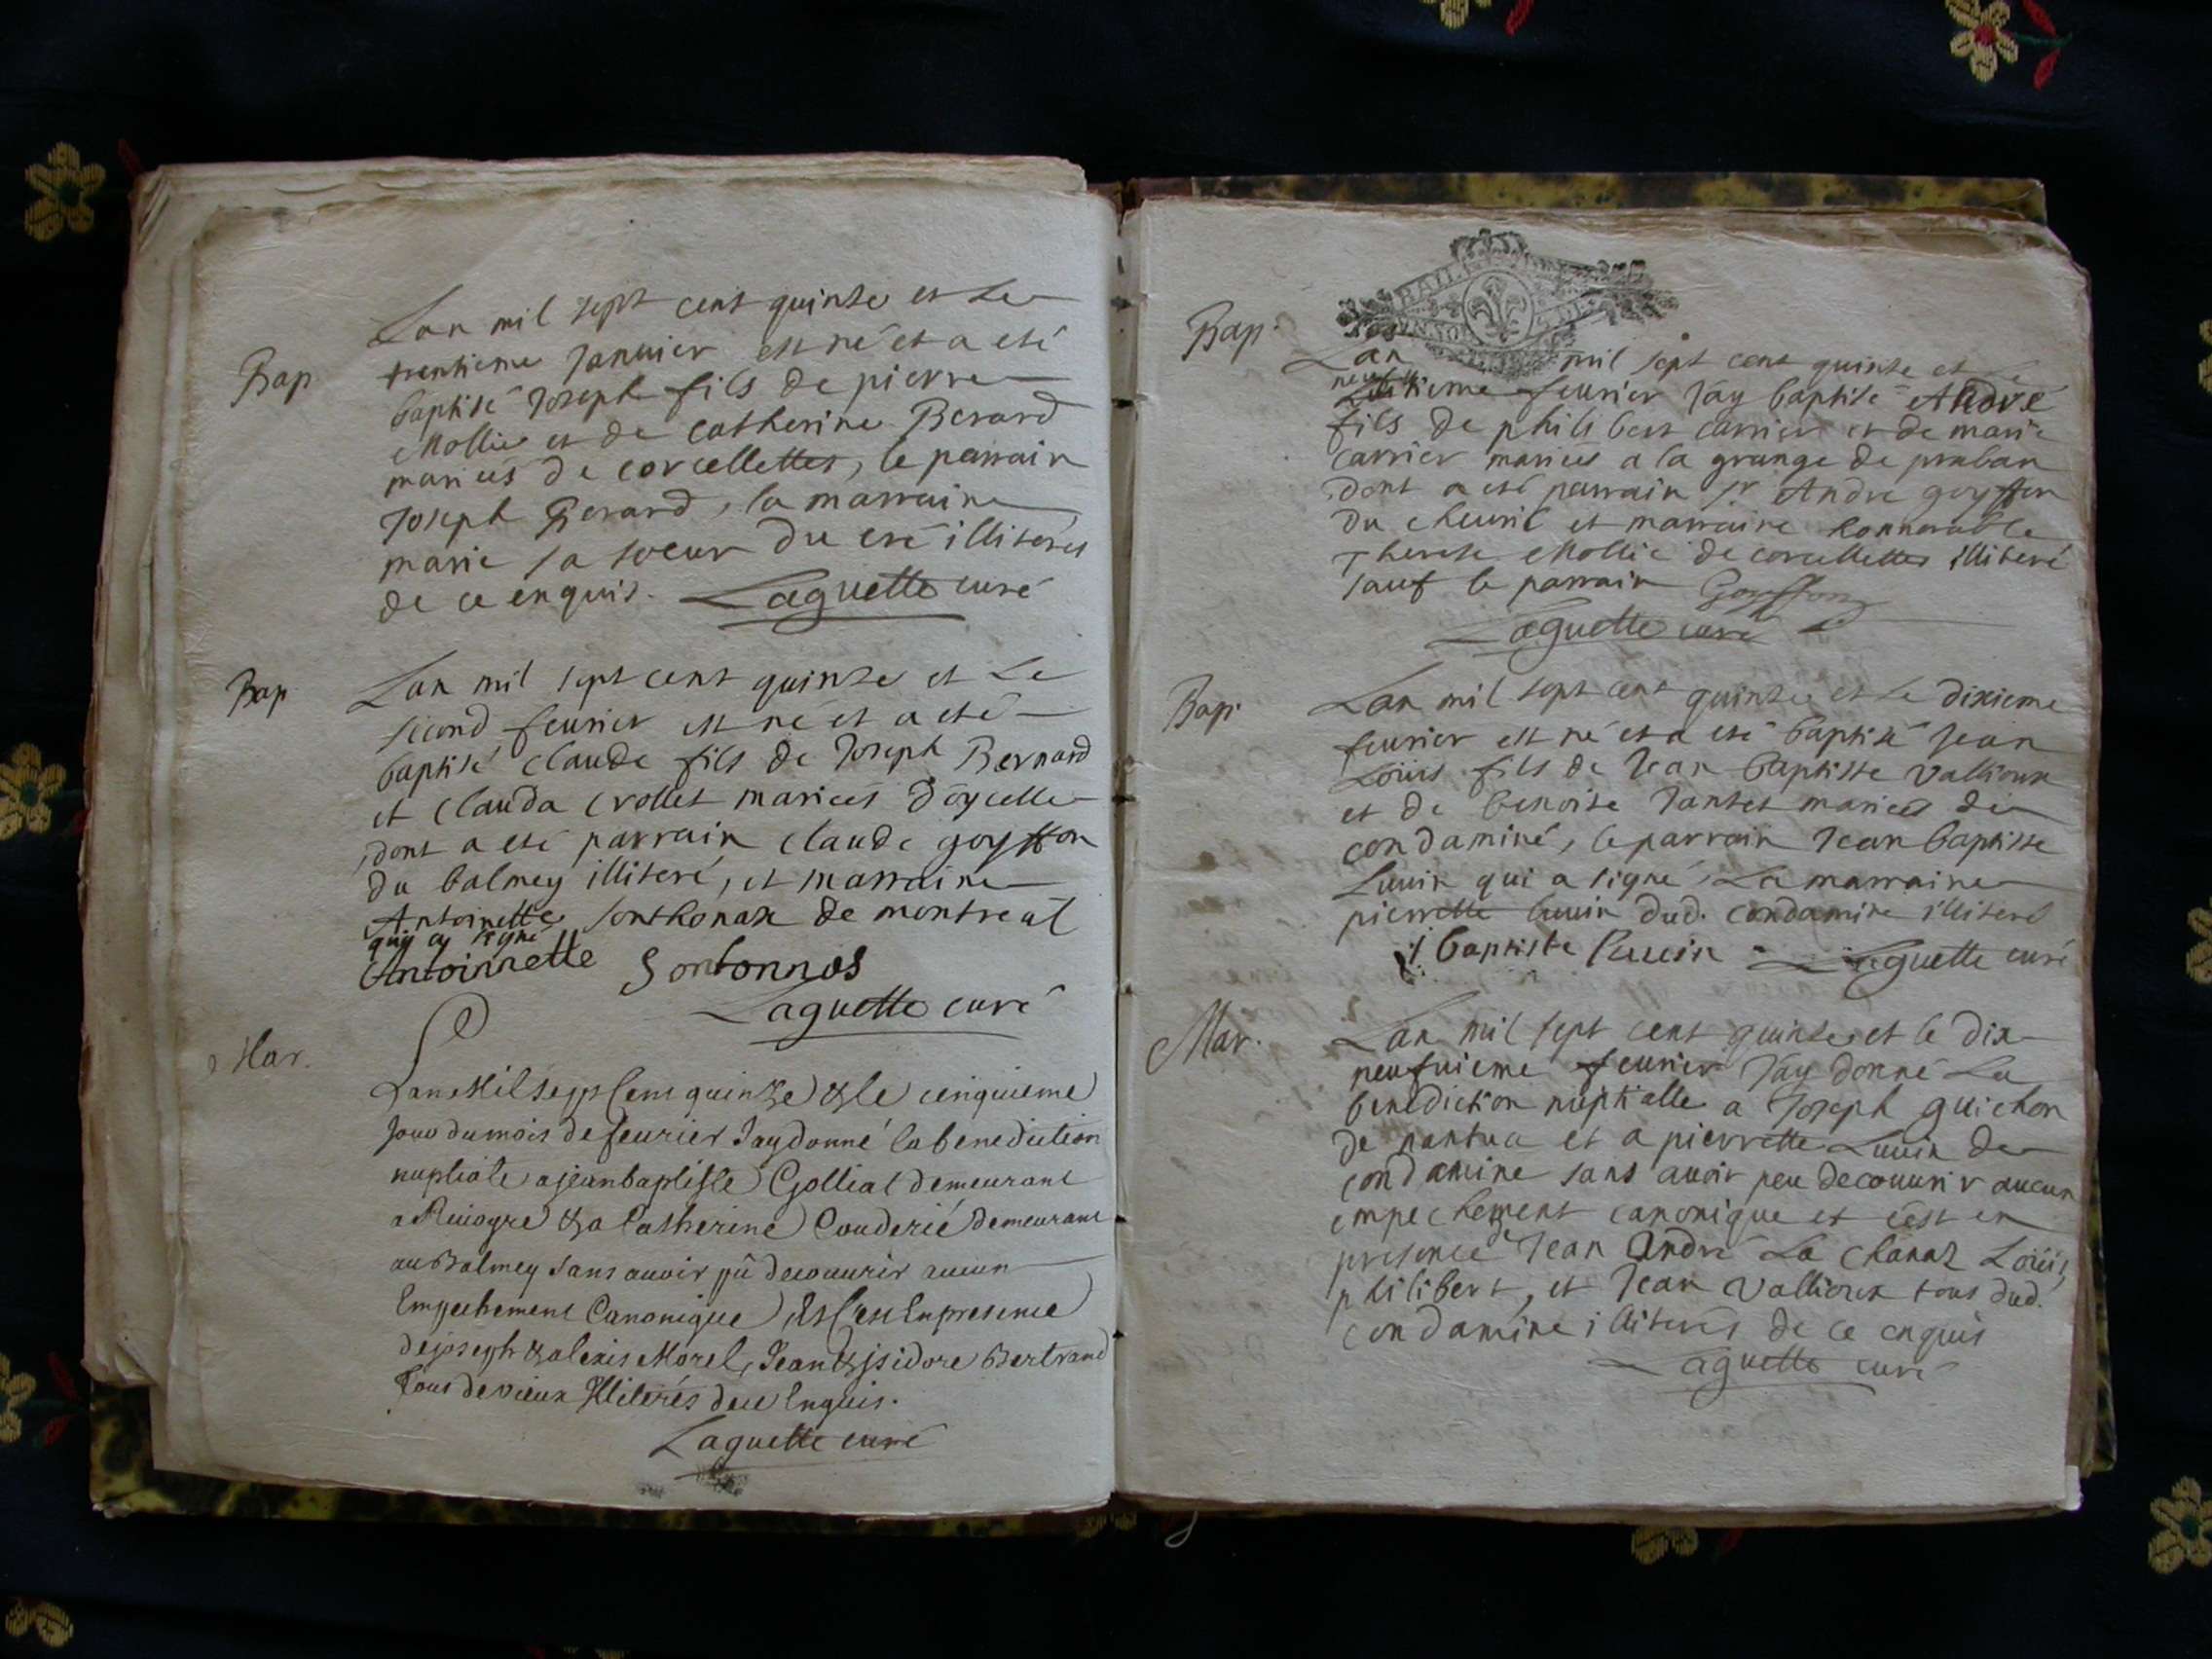 Bap
Lan mil sept cent quinse et Le
trentieme Januier est né et a esté
baptisé Joseph fils de pierre
Mollie et de catherine Berard
mariés de corcellettes, le parrain
Joseph Berard, la marraine
marie sa soeur du cré illiterés
de ce enquis. Laguette curé
Bap
Lan mil sept cent quinse et Le
second feurier est né et a esté
baptisé claude fils de Joseph Bernard
et clauda crollet mariés doycelle
dont a esté parrain claude goyffon
du balmey illiteré, et marraine
Antoinette sonthonax de montreal
quy ay signé
Antoinette Sontonnas
Laguette curé
Mar.
Lan Mil sept Cent quinze & le cinquieme
jour du mois de feurier Jay donné la benediction
nuptiale a jean baptiste Golliat demeurant
a & a Catherine Couderié demeurant
au Balmey sans auoir pû decouurir aucun
Empechement Canonique Et Cest En presence
de joseph & alexis Morel, Jean & jsidore Bertrand
Tous de vieux Illiterés de ce Enquis.
Laguette curé
Bap
BAIL
Lan mil sept cent quinse et le
neuf
feurier Jay baptisé André
fils de philibert carrier et de marie
carrier mariés a la grange de praban
dont a esté parrain sr Andre goyffon
du cheuril et marraine honnorable
Therese Mollie de corcellettes illiteré
sauf le parrain Goyffon
Laguette curé
Bap
Lan mil sept cent quinse et le dixieme
feurier est né et a esté baptisé Jean
Loüis fils de Jean baptiste vallioux
et de benoite Jantet mariés de
condamine, le parrain Jean baptiste
Luuin qui a signé, La marraine
pierrette luuin dud. condamine illiteré
J baptiste Luuin Laguette curé
Mar.
Lan mil sept cent quinse et le dix
neufuieme feurier Jay donné La
benediction nuptialle a Joseph guichon
de nantua et a pierrette Luuin de
condamine sans auoir peu decouurir aucun
empechement canonique et cest en
presence de Jean André La chanas Loüis,
philibert, et Jean vallioux tous dud.
condamine illiterés de ce enquis
Laguette curé